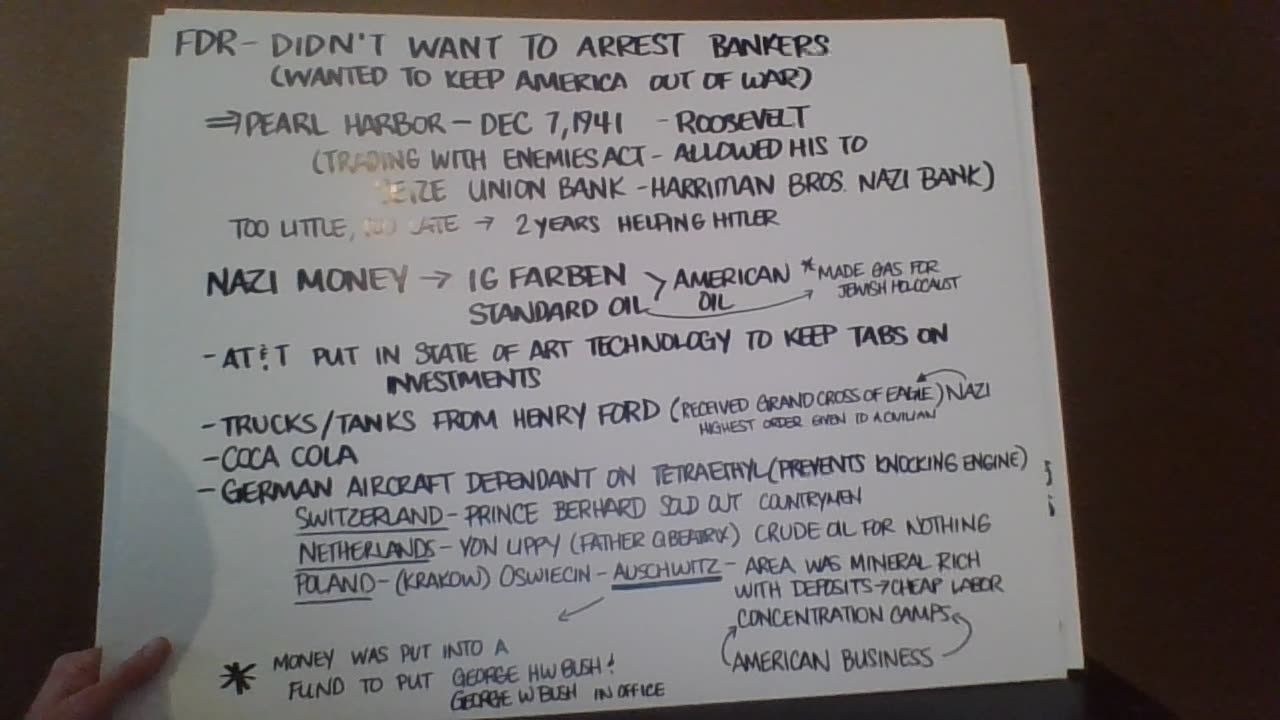 FDR - DIDN'T WANT TO ARREST BANKERS
(WANTED TO KEEP AMERICA OUT OF WAR)
⇒ PEARL HARBOR - DEC 7, 1941 - ROOSEVELT
(TRADING WITH ENEMIES ACT - ALLOWED HIS TO
SEIZE UNION BANK - HARRIMAN BROS. NAZI BANK)
TOO LITTLE, TOO LATE → 2 YEARS HELPING HITLER
NAZI MONEY → IG FARBEN > AMERICAN * MADE GAS FOR
JEWISH HOLOCAUST
STANDARD OIL OIL
- AT&T PUT IN STATE OF ART TECHNOLOGY TO KEEP TABS ON
INVESTMENTS
- TRUCKS/TANKS FROM HENRY FORD (RECEIVED GRAND CROSS OF EAGLE) NAZI
HIGHEST ORDER GIVEN TO A CIVILIAN
- COCA COLA
- GERMAN AIRCRAFT DEPENDANT ON TETRAETHYL (PREVENTS KNOCKING ENGINE)
SWITZERLAND - PRINCE BERHARD SOLD OUT COUNTRYMEN
NETHERLANDS - VON LIPPY (FATHER Q BEATRIX) CRUDE OIL FOR NOTHING
POLAND - (KRAKOW) OSWIECIN - AUSCHWITZ - AREA WAS MINERAL RICH
WITH DEPOSITS → CHEAP LABOR
CONCENTRATION CAMPS
AMERICAN BUSINESS
* MONEY WAS PUT INTO A
FUND TO PUT GEORGE HW BUSH &
GEORGE W BUSH IN OFFICE